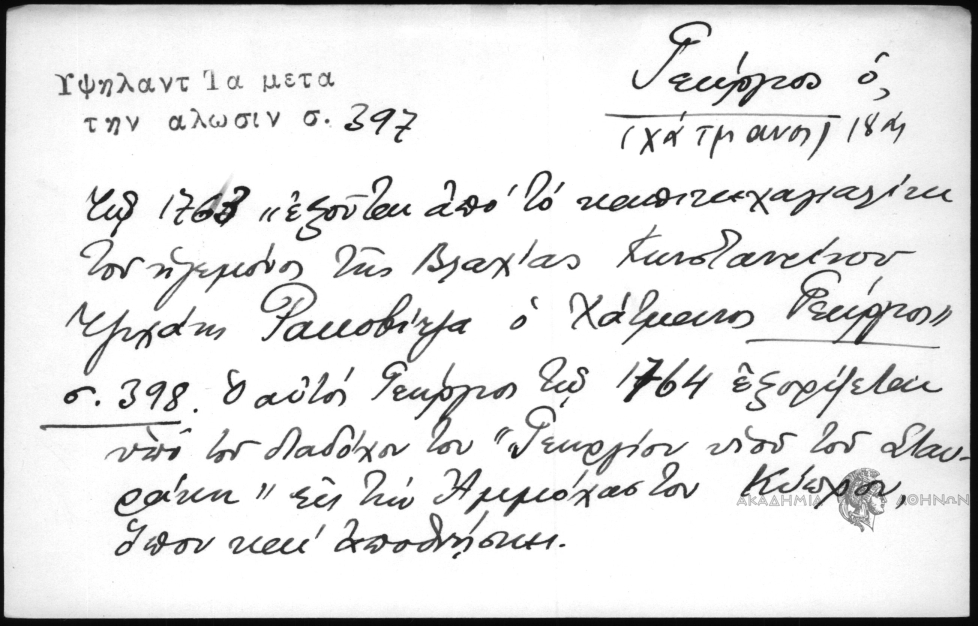 Υψηλαντ Ία μετα
την αλωσιν σ. 397
Γεώργιος ὁ,
(χάτμανος) 18 αἰ
Τῷ 1763 "ἐξοῦται ἀπό τό καπικεχαγιαλίκι
τοῦ ἡγεμόνος τῆς Βλαχίας Κωνσταντίνου
Ρακοβίτζα ὁ Χάτμανος Γεώργιος"
σ. 398. Ὁ αὐτός Γεώργιος τῷ 1764 ἐξορίζεται
ὑπό τοῦ διαδόχου του "Γεωργίου υἱοῦ τοῦ Σταυ-
ράκη" εἰς τήν Ἀμμόχωστον Κύπρου,
ὅπου καί ἀποθνήσκει.
ΑΚΑΔΗΜΙΑ ΑΘΗΝΩΝ